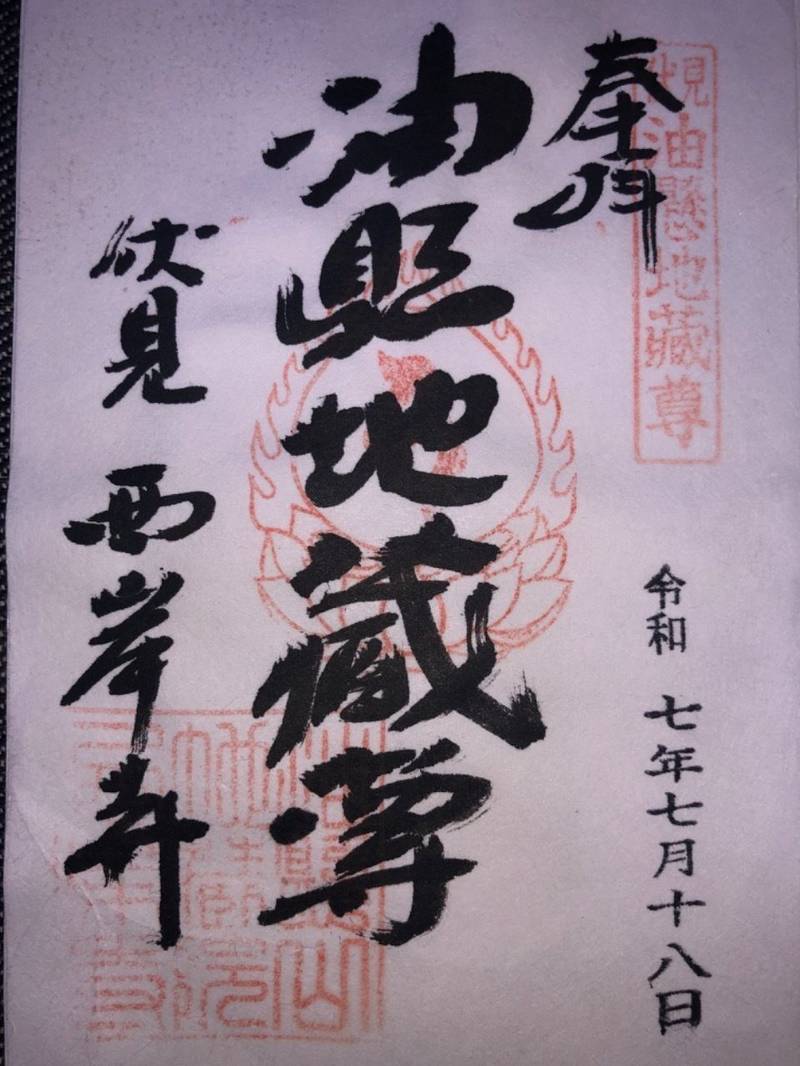 伏見油懸地蔵尊
奉拝
令和 七年七月十八日
油懸地蔵尊
伏見 西岸寺